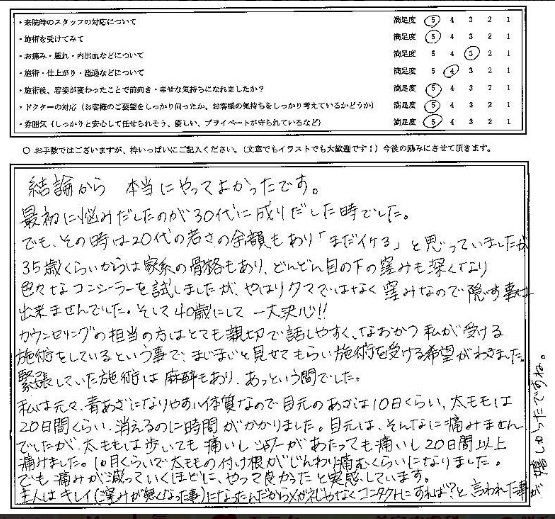 ・来院時のスタッフの対応について 満足度 5 4 3 2 1
・施術を受けてみて 満足度 5 4 3 2 1
・お痛み・腫れ・内出血などについて 満足度 5 4 3 2 1
・施術・仕上がり・経過などについて 満足度 5 4 3 2 1
・施術後、容姿が変わったことで前向き・幸せな気持ちになれましたか? 満足度 5 4 3 2 1
・ドクターの対応(お客様のご要望をしっかり伺ったか、お客様の気持ちをしっかり考えているかどうか) 満足度 5 4 3 2 1
・雰囲気(しっかりと安心して任せられそう、優しい、プライベートが守られているなど) 満足度 5 4 3 2 1
○ お手数ではございますが、枠いっぱいにご記入ください。(文章でもイラストでも大歓迎です!)今後の励みにさせて頂きます。
結論から 本当にやってよかったです。
最初に悩みだしたのが30代に成りだした時でした。
でも、その時は20代の若さの余韻もあり「まだイケる」と思っていましたが
35歳くらいからは家系の骨格もあり、どんどん目の下の窪みも深くなり
色々なコンシーラーを試しましたが、やはりクマではなく窪みなので隠す事は
出来ませんでした。そして40歳にして一大決心!!
カウンセリングの担当の方はとても親切で話しやすく、なおかつ私が受ける
施術をしているという事で、まじまじと見せてもらい施術を受ける希望がわきました。
緊張していた施術は麻酔もあり、あっという間でした。
私は元々、青あざになりやすい体質なので目元のあざは10日くらい、太ももは
20日間くらい、消えるのに時間がかかりました。目元は、そんなに痛みません
でしたが、太ももは歩いても痛いし、があたっても痛いし20日間以上
痛みました。1ヵ月くらいで太ももの付け根がじんわり痛むくらいになりました。
でも痛みが減っていくほどに、やって良かったと実感しています。
主人はキレイ(窪みが無くなった事)になったんだからメガネじゃなくコンタクトにすれば?と言われた事が
嬉しかったですね。